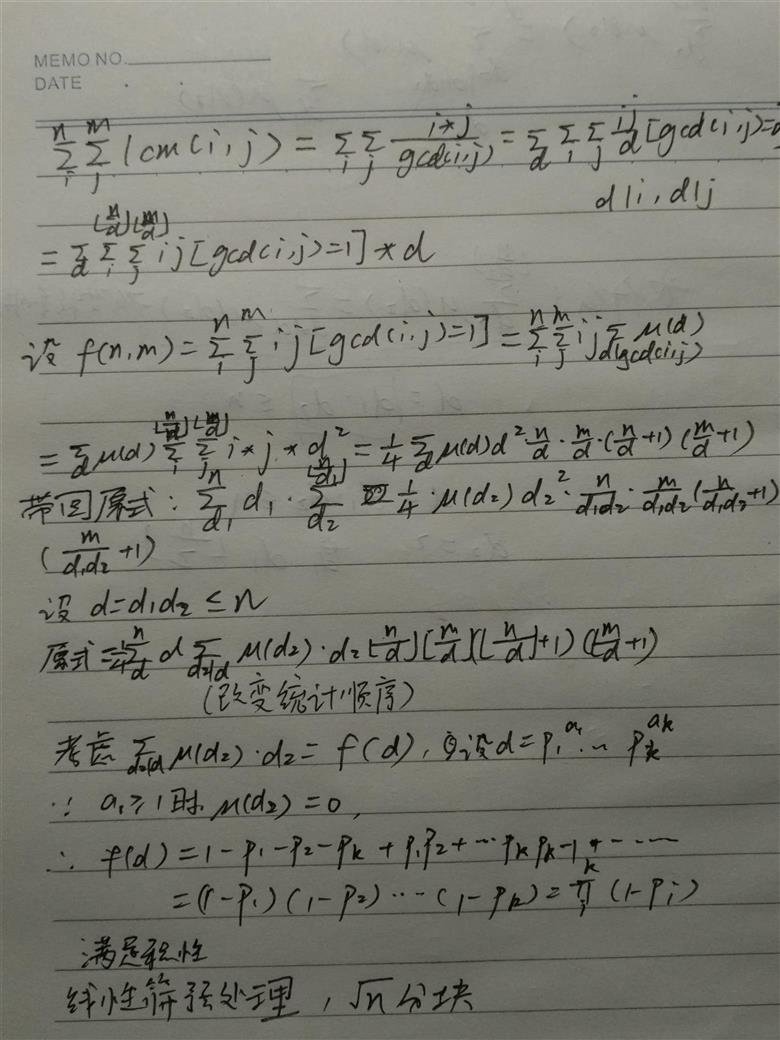 MEMO NO.
DATE
∑_i^n ∑_j^m lcm(i,j) = ∑_i ∑_j i*j / gcd(i,j) = ∑_d ∑_i ∑_j ij/d [gcd(i,j)=d]
d|i, d|j
= ∑_d ∑_i^{[n/d]} ∑_j^{[m/d]} ij[gcd(i,j)=1]*d
设 f(n,m) = ∑_i^n ∑_j^m ij[gcd(i,j)=1] = ∑_i^n ∑_j^m ij ∑_{d|gcd(i,j)} μ(d)
= ∑_d μ(d) ∑_i^{[n/d]} ∑_j^{[m/d]} i*j*d² = 1/4 ∑_d μ(d)d² n/d · m/d · (n/d+1)(m/d+1)
带回原式: ∑_{d₁}^n d₁ · ∑_{d₂}^{[n/d₁]} 1/4 · μ(d₂)d₂² · n/d₁d₂ · m/d₁d₂ (n/d₁d₂+1)
(m/d₁d₂+1)
设 d=d₁d₂≤n
原式=1/4 ∑_d^n d ∑_{d₂|d} μ(d₂)·d₂[n/d][m/d]([n/d]+1)([m/d]+1)
(改变统计顺序)
考虑 ∑_{d₂|d} μ(d₂)·d₂ = f(d), 设d=p₁^{a₁}… p_k^{a_k}
∵ a₁>1时 μ(d₂)=0,
∴ f(d) = 1-p₁-p₂-p_k+p₁p₂+…p_kp_{k-1}+……
=(1-p₁)(1-p₂)…(1-p_k)=∏_i^k(1-p_i)
满足积性
线性筛预处理, √n分块